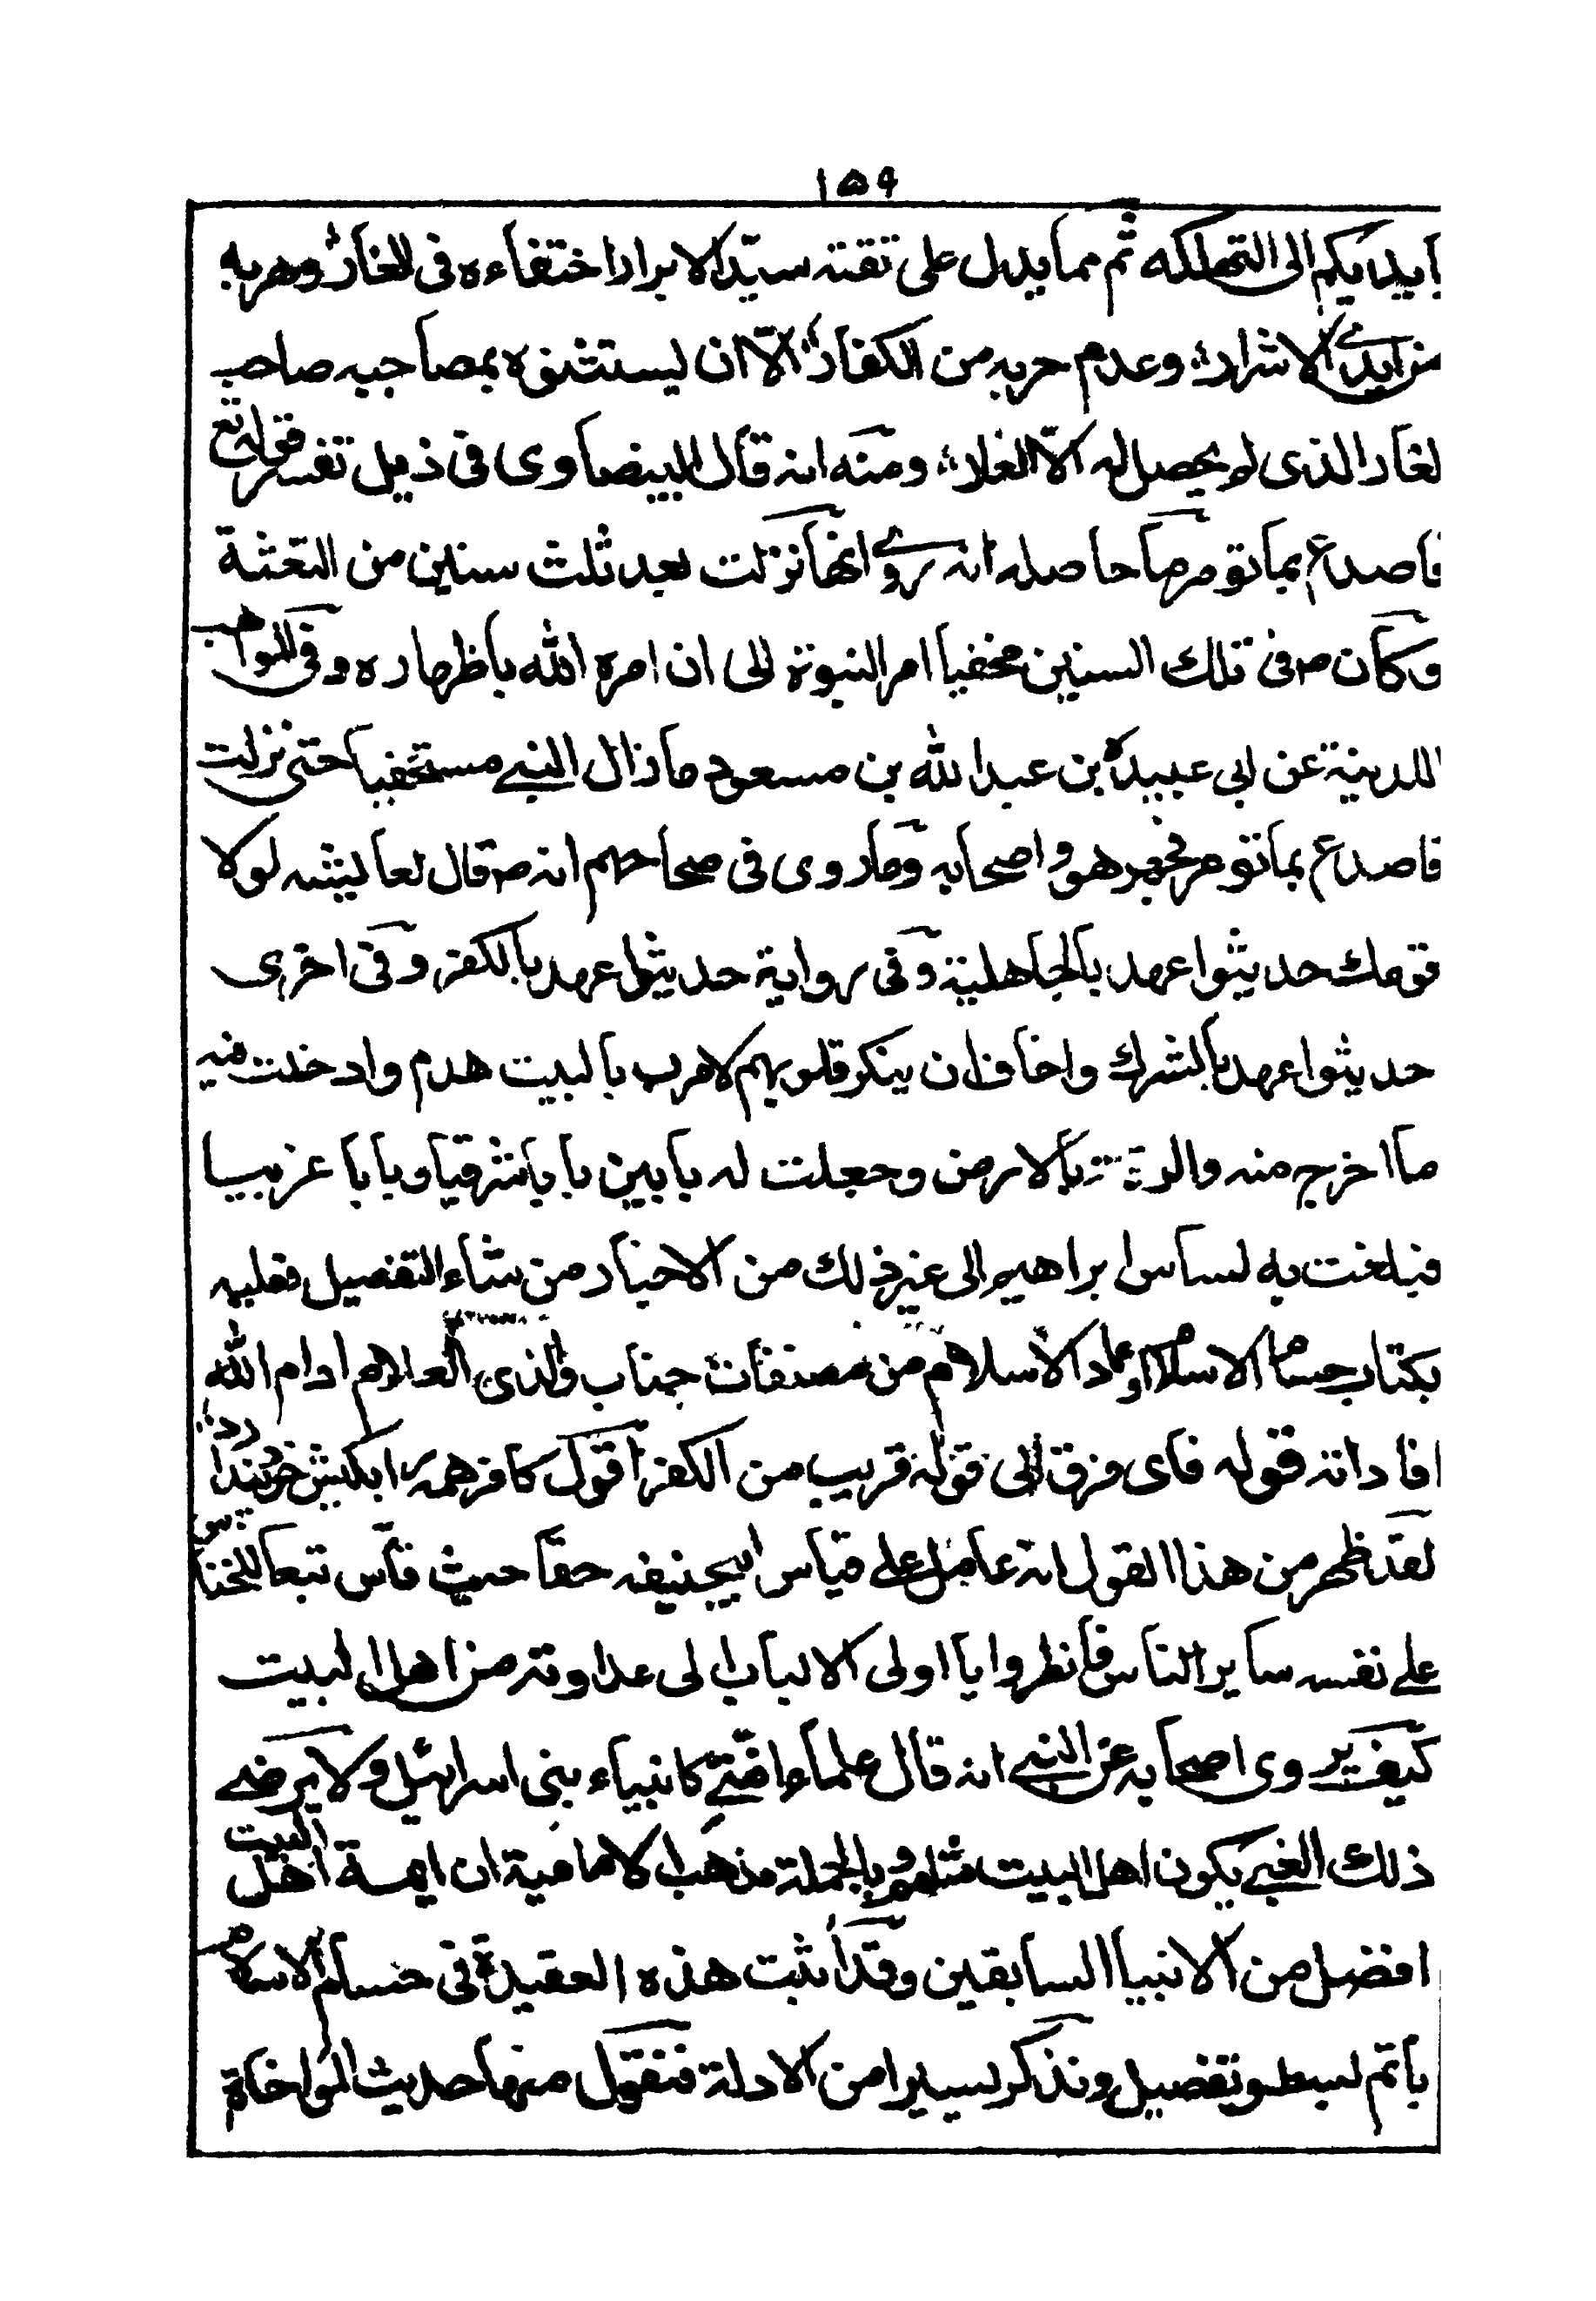 ١٥٩
بايديكم الى التهلكه ثم مما يدل على تقته سيّد الابرار اختفاءه فى الغار وهربه
من ايدى الاشرار وعدم حربه من الكفار الّا ان يستثنوه بمصاحبه صاحب
لغار الذى لم يحصل له الّا الغلا ومنه انه قال البيضاوى فى ذيل تفسير قوله تع
فاصدع بما تومر ما حاصله انه روى انها نزلت بعد ثلث سنين من البعثة
وكان ص فى تلك السنين مخفيا امر النبوة الى ان امره الله باظهاره وفى المواهب
اللدنية عن ابى عبيدة بن عبد الله بن مسعود ما زال النبى مستخفيا حتى نزلت
فاصدع بما تومر فجهر هو واصحابه وما روى فى صحاحهم انه ص قال لعايشه لولا
قومك حديثوا عهد بالجاهلية وفى رواية حديثوا عهد بالكفر وفى اخرى
حديثوا عهد بالشرك واخاف ان ينكر قلوبهم لامرت بالبيت هدم وادخلت فيه
ما اخرج منه والزقته بالارض وجعلت له بابين بابا شرقيا وبابا غربيا
فبلغت به اساس ابراهيم الى غير ذلك من الاخبار من شاء التفصيل فعليه
بكتاب حسام الاسلام او عماد الاسلام من مصنفات جناب والدى العلام ادام الله
افاداته قوله فاى فرق الى قوله قريب من الكفر اقول كافر همه را بكيش خود پندارد
لقد ظهر من هذا القول انه عامل على قياس ابيحنيفه حقا حيث قاس تبعا للخناس
على نفسه ساير الناس فانظروا يا اولى الالباب الى عداوته من اهل البيت
كيف يروى اصحابه عن النبى انه قال علماء امتى كانبياء بنى اسرائيل ولا يرضى
ذلك الغبى بكون اهل البيت مثلهم وبالجملة مذهب الامامية ان ايمة اهل البيت
افضل من الانبيا السابقين وقد اثبت هذه العقيدة فى حسام الاسلام
باتم بسط وتفصيل ونذكر يسيرا من الادلة فنقول منها حديث المواخاة